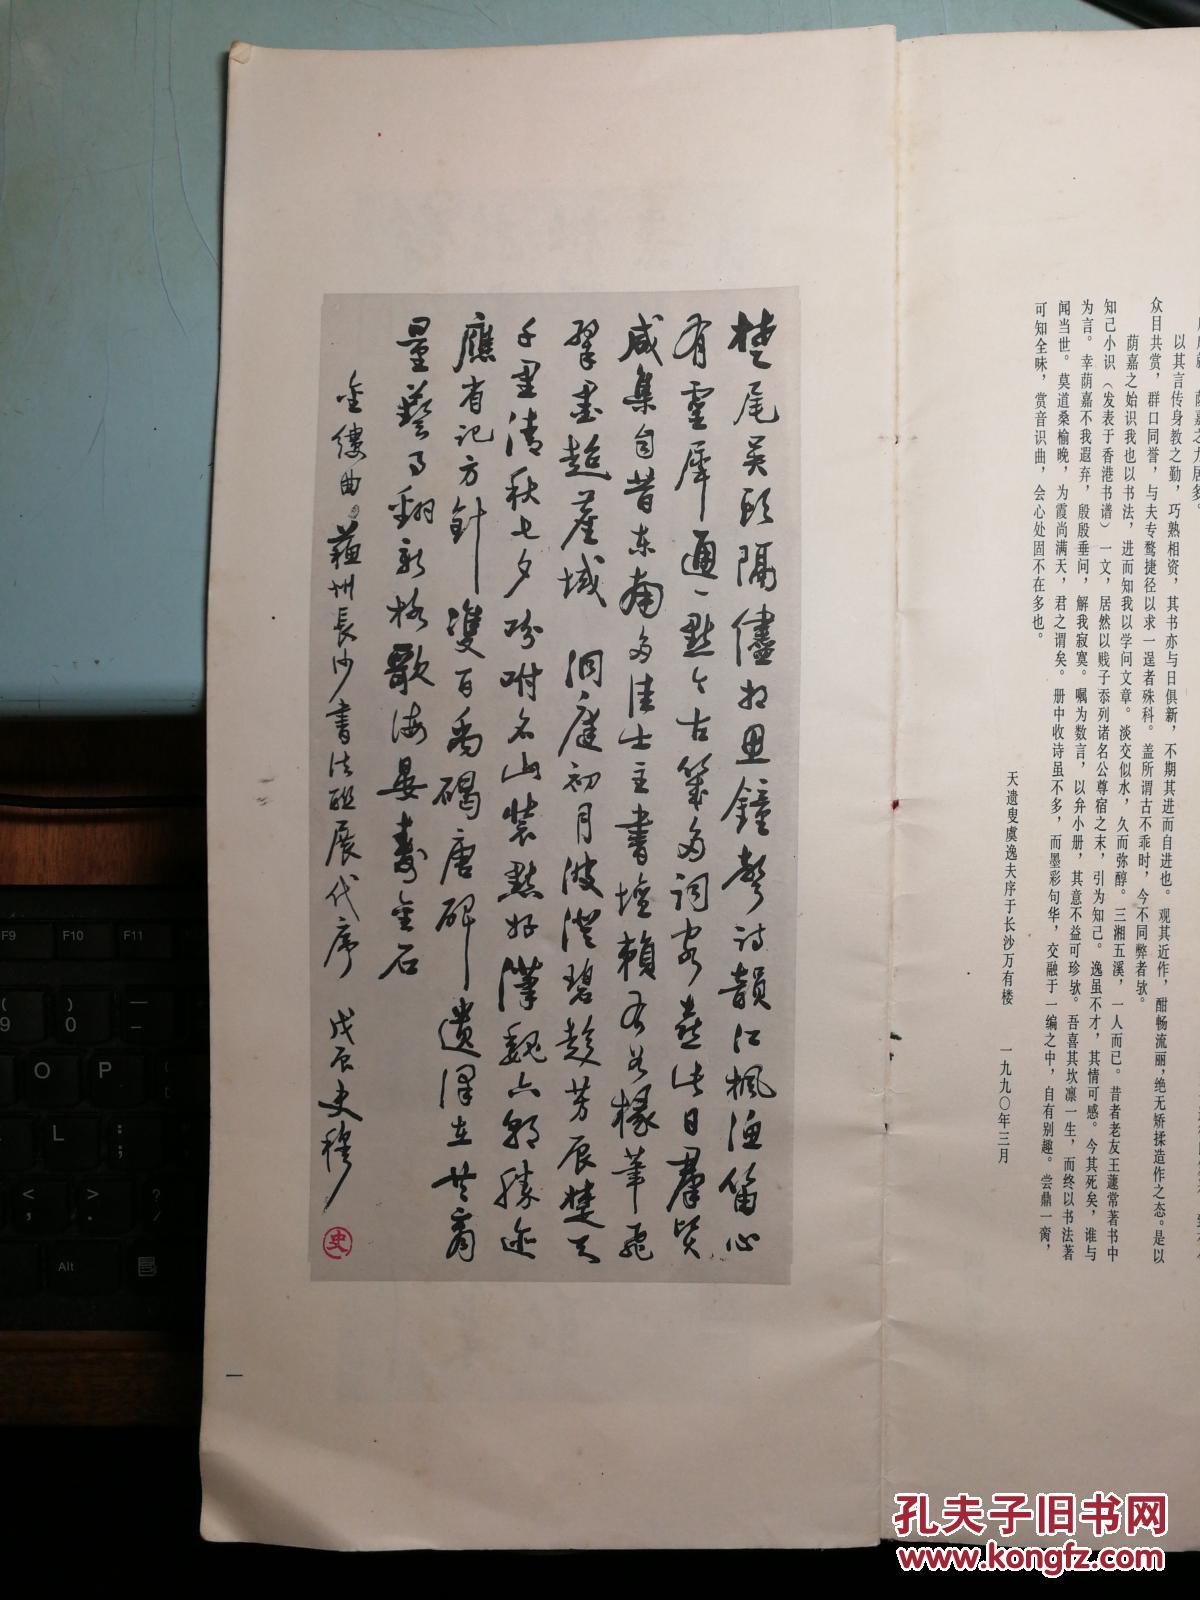 以其言传身教之勤，巧熟相资，其书亦与日俱新，不期其进而自进也。观其近作，酣畅流丽，绝无矫揉造作之态。是以
众目共赏，群口同誉，与夫专鹜捷径以求一逞者殊科。盖所谓古不乖时，今不同弊者欤。
荫嘉之始识我也以书法，进而知我以学问文章。淡交似水，久而弥醇。三湘五溪，一人而已。昔者老友王蘧常著书中
知己小识（发表于香港书谱）一文，居然以贱子忝列诸名公尊宿之末，引为知己。逸虽不才，其情可感。今其死矣，谁与
为言。幸荫嘉不我遐弃，殷殷垂问，解我寂寞。嘱为数言，以弁小册，其意不益可珍欤。吾喜其坎凛一生，而终以书法著
闻当世。莫道桑榆晚，为霞尚满天，君之谓矣。册中收诗虽不多，而墨彩句华，交融于一编之中，自有别趣。尝鼎一脔，
可知全味，赏音识曲，会心处固不在多也。
天遗叟虞逸夫序于长沙万有楼 一九九〇年三月
楚尾吴头隔儘相思鐘聲诗韻江枫渔笛心
有霊犀通一點今古幾多词客 此日羣贤
咸集自昔东南多佳士主書壇賴有 椽筆飛
翠墨超 域 洞庭初月波澄碧趁芳辰楚天
千里清秋七夕吩咐名山装點好漢魏六朝勝迹
應省记方針雙百禹碣唐碑遺澤在共商
量藝事翻新格歌海晏壽金石
金缕曲 蘇州長沙書法联展代序 戊辰史穆
史
一
F9 F10 F11
( )
9 0
O P
L
Alt
孔夫子旧书网
www.kongfz.com